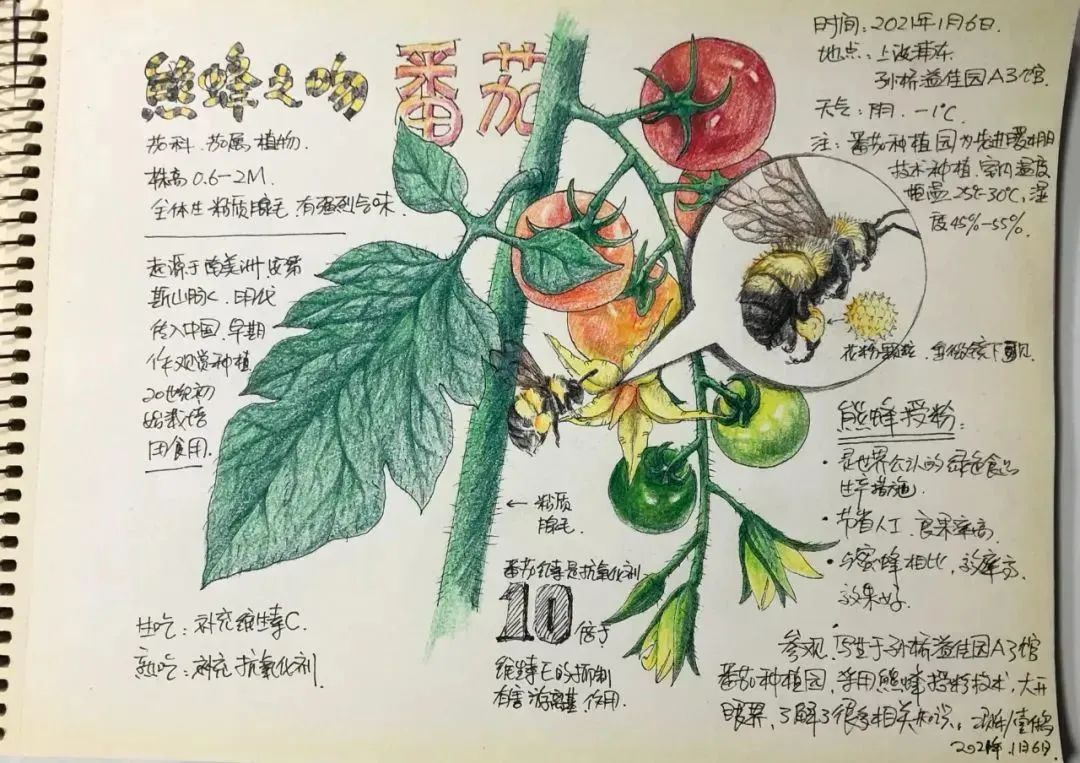 熊蜂之吻 番茄
茄科.茄属植物.
株高0.6-2M.
全体生粘质腺毛.有强烈气味.
起源于南美洲.安第
斯山脉.明代
传入中国.早期
作观赏种植
20世纪初
始栽培
食用.
生吃:补充维生素C.
熟吃:补充抗氧化剂.
← 粘质
腺毛.
番茄红素是抗氧化剂
10倍于
维生素E的抑制
有害游离基作用.
时间:2021年1月6日.
地点:上海浦东
孙桥益佳园A3馆.
天气:阴.-1℃
注:番茄种植园为先进暖棚
技术种植.室内温度
恒温25℃-30℃,湿
度45%-55%.
花粉颗粒.显微镜下可见.
熊蜂授粉:
·是世界公认的绿色食品
生产措施.
·节省人工.良果率高.
·与蜜蜂相比,效率高.
效果好.
参观.写生于孙桥益佳园A3馆
番茄种植园.采用熊蜂授粉技术,大开
眼界,了解了很多相关知识。
2021年.1月6日.